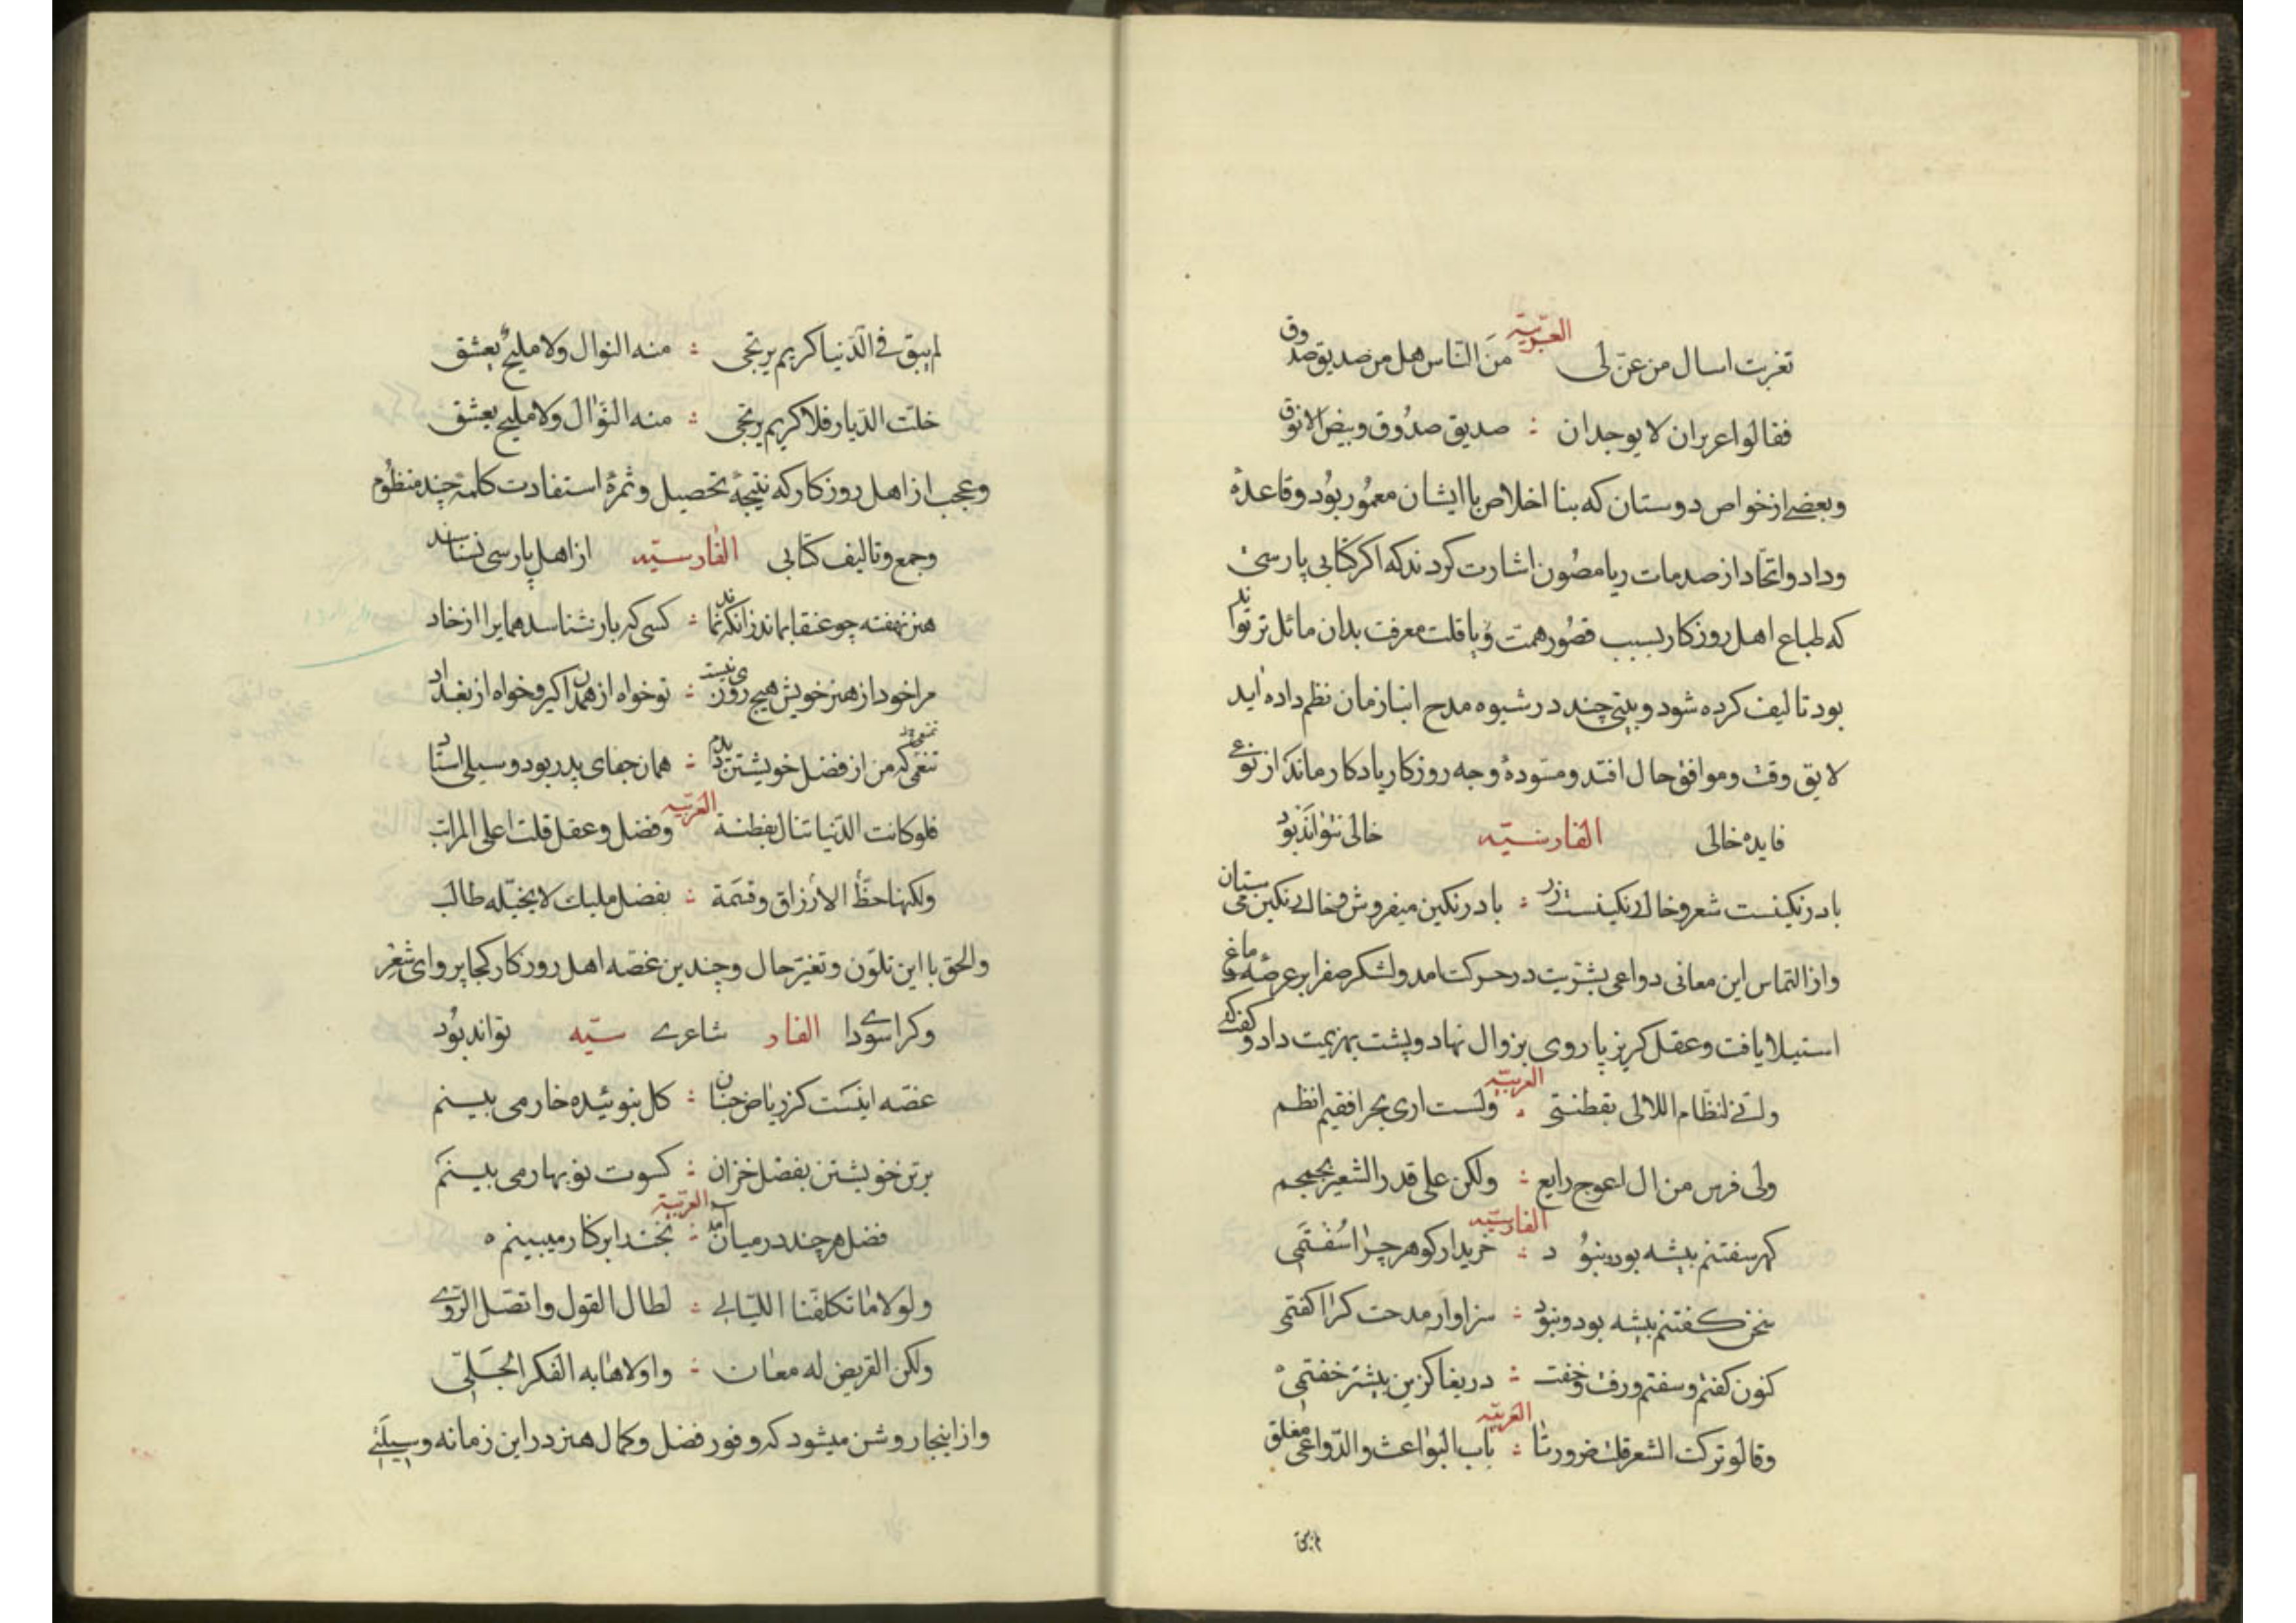 العربیّة
تغربت اسال من عنّ لی من النّاس هل من صدیق صدوق
فقالوا عزیزان لا یوجدان : صدیق صدُوق و بیض الانوق
و بعضی از خواص دوستان که بنا اخلاص با ایشان معمُور بوُد و قاعدهٔ
وداد و اتحّاد از صدمات ریا مصُون اشارت کردند که اکر کتابی پارسی
که طباع اهل روزکار بسبب قصُور همت و یا قلت معرفت بدان مائل تر تواند
بود تالیف کرده شود و بیتی چند در شیوه مدح ابناء زمان نظم داده اید
لایق وقت و موافق حال افتد و مسّودهٔ وجه روزکار یادکار ماند از نوعی
فایده خالی الفارسیّه خالی نتواند بوُد
باد رنکینست شعر و خاک رنکینست زر : باد رنکین میفروش و خاک رنکین می ستان
و از التماس این معانی دواعی بشریت در حرکت امد و لشکر صفرا بر عرصه دماغ
استیلا یافت و عقل کریز پا روی بزوال نهاد و پشت بهزیمت داد و کفت که
العربیّه
و انّی لنظّام اللالی بفطنتی : و لست اری بحرا فقیم انظم
ولی فرس من ال اعوج رایع : ولکن علی قدر الشعیر یحمحم
الفارسیّه
کهر سفتنم بیشه بود و بنوُد : خریدار کوهر چرا سُفتمی
سخن کفتنم بیشه بود و بنود : سزاوار مدحت کرا کفتمی
کنون کفتم و سفتم و رفت و خفت : دریغا کزین بیشتر خفتمی
العربیّه
وقالو ترکت الشعر قلت ضرورتا : باب البواعث والدّواعی مغلق
لم یبق
لم یبق فی الدّنیا کریم یرتجی : منه النوال ولا ملیحٌ یعشق
خلت الدّیار فلا کریم یرتجی : منه النّوال ولا ملیح یعشق
و عجب از اهل روزکار که نتیجهٔ تحصیل و ثمرهٔ استفادت کلمهٔ چند منظوُم
و جمع و تالیف کتابی الفارسیّه از اهل پارسی نشناسند
هنر نهفته چو عنقا بماند زانکه نماند : کسی که باز شناسد همای را از خاد
مرا خود از هنر خویش هیچ روزی نیست : تو خواه از همدان کیر و خواه از بغداد
تنعّمی که من از فضل خویشتن دیدم : همان جفای پدر بود و سیلی استاد
العربیّه
فلو کانت الدّنیا تنال بفطنة و فضل و عقل قلت اعلی المراتب
ولکنها حظّ الارزاق و قسمة : بفضل ملیک لا بحیّله طالب
والحق با این تلوّن و تغیّر حال و چندین غصّه اهل روزکار کجا پروای شعر
و کرا سودای الفار شاعری سیّه تواند بوُد
غصّه اینست کز ریاض جنان : کل نبوئیده خار می بینم
بر تن خویشتن بفصل خزان : کسوت نو بهار می بینم
العربیّة
فضل هر چند در میان آمد : بخت را بر کنار میبینم ه
ولولا ما تکلفنا اللیّالی : لطال القول و اتصّل الرّوی
ولکن القریض له معان : و اولاها به الفکر الجَلیّ
و از اینجا روشن میشود که وفور فضل و کمال هنر در این زمانه وسیلتی